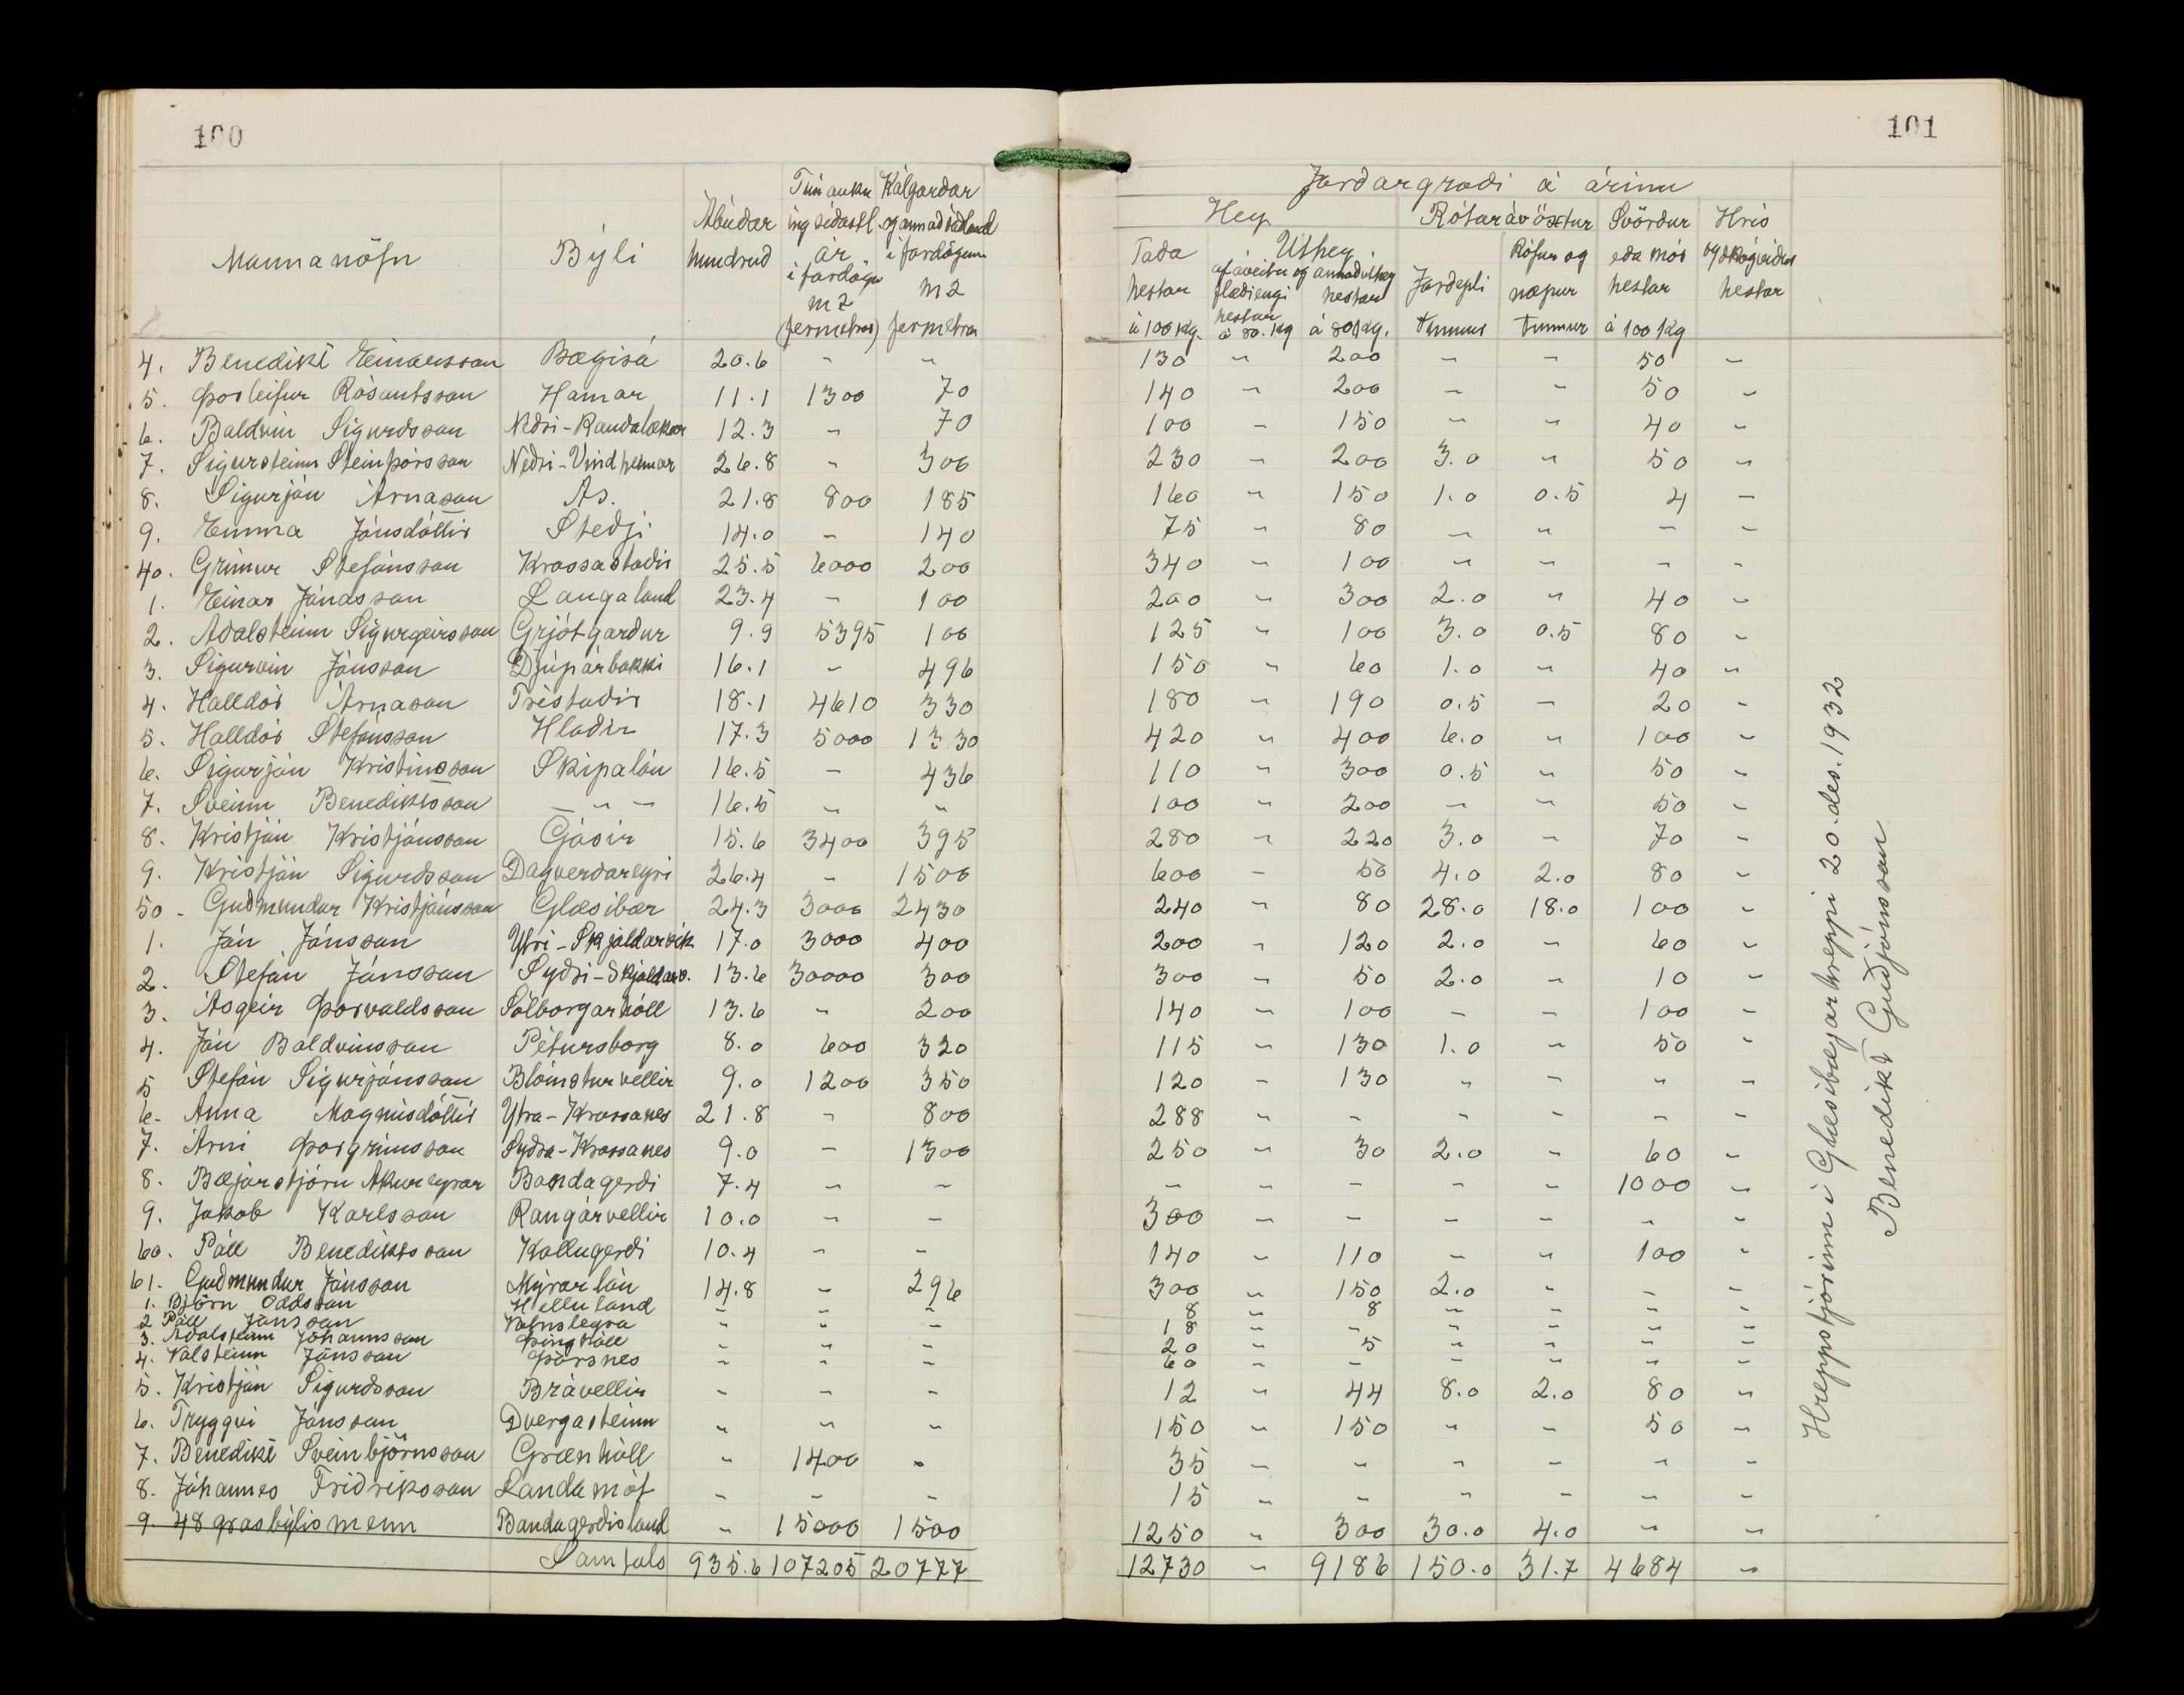 100
Mannanöfn Býli Ábúðar hundruð Túnauku ing síðastl. ár í fardögu m2 (fermetrar) Kálgarðar og annað sáðland í fardögum m2 fermetrar
4. Benedikt Einarsson Bægisá 20.6 " "
5. Þorleifur Rósantsson Hamar 11.1 1300 70
6. Baldvin Sigurdsson Nedri-Raudalækur 12.3 " 70
7. Sigursteinn Steinþórsson Nedri-Vindheimar 26.8 " 300
8. Sigurján Árnason Ás. 21.8 800 185
9. Emma Jónsdóttir Stedji 14.0 " 140
40. Grímur Stefánsson Krossastadir 25.5 6000 200
1. Einar Jónasson Laugaland 23.4 " 100
2. Adalsteinn Sigurgeirsson Grjótgardur 9.9 5395 100
3. Sigurvin Jónsson Djúpárbakki 16.1 " 496
4. Halldór Árnason Tréstadir 18.1 4610 330
5. Halldór Stefánsson Hladir 17.3 5000 1330
6. Sigurjón Kristinsson Skipalón 16.5 " 436
7. Sveinn Benediktsson — " — 16.5 " "
8. Kristján Kristjánsson Gásir 15.6 3400 395
9. Kristján Sigurdsson Dagverdareyri 26.4 " 1500
50. Gudmundur Kristjánsson Glæsibær 24.3 3000 2430
1. Jón Jónsson Ytri-Skjaldarvík 17.0 3000 400
2. Stefán Jónsson Sydri-Skjaldarv. 13.6 30000 300
3. Ásgeir Þorvaldsson Sólborgarhóll 13.6 " 200
4. Jón Baldvinsson Pétursborg 8.0 600 320
5 Stefán Sigurjónsson Blómsturvellir 9.0 1200 350
6. Anna Magnúsdóttir Ytra-Krossanes 21.8 " 800
7. Árni Þorgrímsson Sydra-Krossanes 9.0 " 1300
8. Bæjarstjórn Akureyrar Bandagerdi 7.4 " "
9. Jakob Karlsson Rangárvellir 10.0 " "
60. Páll Benediktsson Kollugerdi 10.4 " "
61. Gudmundur Jónsson Mýrarlón 14.8 " 296
1. Björn Oddsson Helluland " " "
2 Páll Jónsson Vatnsleysa " " "
3. Adalsteinn Jóhannsson Þinghóll " " "
4. Valsteinn Jónsson Þórsnes " " "
5. Kristján Sigurdsson Brávellir " " "
6. Tryggvi Jónsson Dvergasteinn " " "
7. Benedikt Sveinbjörnsson Grænhóll " 1400 "
8. Jóhannes Fridriksson Landamót " " "
9. 48 grasbýlismenn Bandagerdisland " 15000 1500
Samtals 935.6 107205 20777
101
Jarðargróði á árinu
Hey Rótarávöxtur Svörður eða mór hestar á 100 kg Hrís og skógviður hestar
Taða hestar á 100 kg. Úthey af áveitu og flæðiengi hestar á 80. kg annað úthey hestar á 80 kg. Jarðepli tunnur Rófur og næpur tunnur
130 " 200 " " 50 "
140 " 200 " " 50 "
100 " 150 " " 40 "
230 " 200 3.0 " 50 "
160 " 150 1.0 0.5 4 "
75 " 80 " " " "
340 " 100 " " " "
200 " 300 2.0 " 40 "
125 " 100 3.0 0.5 80 "
150 " 60 1.0 " 40 "
180 " 190 0.5 " 20 "
420 " 400 6.0 " 100 "
110 " 300 0.5 " 50 "
100 " 200 " " 50 "
280 " 220 3.0 " 70 "
600 " 50 4.0 2.0 80 "
240 " 80 28.0 18.0 100 "
200 " 120 2.0 " 60 "
300 " 50 2.0 " 10 "
140 " 100 " " 100 "
115 " 130 1.0 " 50 "
120 " 130 " " " "
288 " " " " " "
250 " 30 2.0 " 60 "
" " " " " 1000 "
300 " " " " " "
140 " 110 " " 100 "
300 " 150 2.0 " " "
8 " 8 " " " "
18 " " " " " "
20 " 5 " " " "
60 " " " " " "
12 " 44 8.0 2.0 80 "
150 " 150 " " 50 "
35 " " " " " "
15 " " " " " "
1250 " 300 30.0 4.0 " "
12730 " 9186 150.0 31.7 4684 "
Hreppstjórinn í Glæsibæjarhreppi 20. des. 1932
Benedikt Guðjónsson